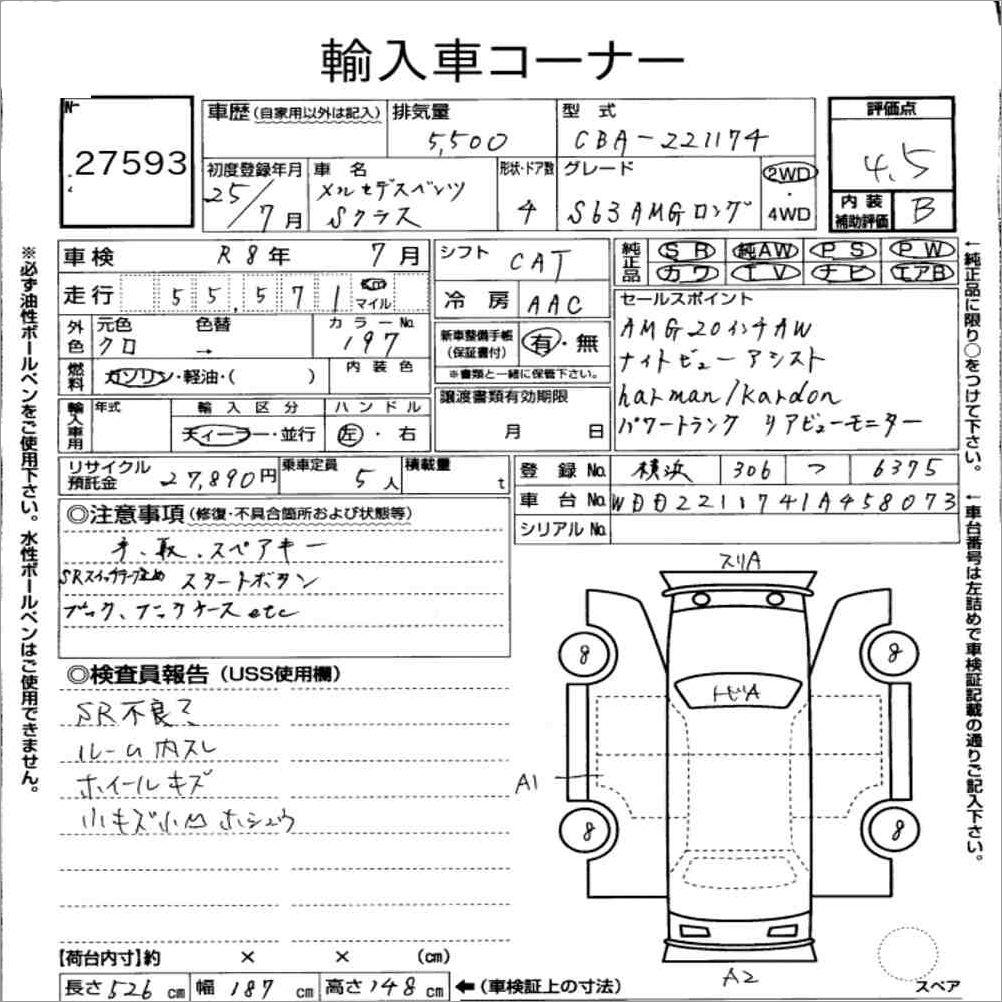 輸入車コーナー
27593
車歴 (自家用以外は記入) 排気量 5,500 型式 CBA-221174 評価点 4.5
初度登録年月 25/7月 車名 メルセデスベンツ Sクラス 形状・ドア数 4 グレード S63AMGロング 2WD・4WD
内装補助評価 B
車検 R8年 7月 シフト CAT 純正品 SR 純AW PS PW
カワ TV ナビ エアB
走行 55,571 km マイル 冷房 AAC セールスポイント
外色 元色 クロ 色替 → カラーNo. 197 新車整備手帳(保証書付) 有・無 AMG20インチAW
※書類と一緒に保管下さい。
燃料 ガソリン・軽油・( ) 内装色 ナイトビューアシスト
輸入車用 年式 輸入区分 ハンドル 譲渡書類有効期限 harman/kardon
ディーラー・並行 左・右 月 日 パワートランク リアビューモニター
リサイクル預託金 27,890円 乗車定員 5人 積載量 t 登録No. 横浜 306 つ 6375
車台No. WDD2211741A458073
シリアルNo.
◎注意事項(修復・不具合箇所および状態等)
手、取、スペアキー
スタートボタン
etc
◎検査員報告(USS使用欄)
SR不良
ルーム内スレ
ホイールキズ
小キズ小凹 ホシュウ
スリA
8 8
トビA
A1
8 8
A2
スペア
【荷台内寸】約 × × (cm)
長さ526cm 幅187cm 高さ148cm ←(車検証上の寸法)
※必ず油性ボールペンをご使用下さい。水性ボールペンはご使用できません。
←純正品に限り○をつけて下さい。
←車台番号は左詰めで車検証記載の通りご記入下さい。